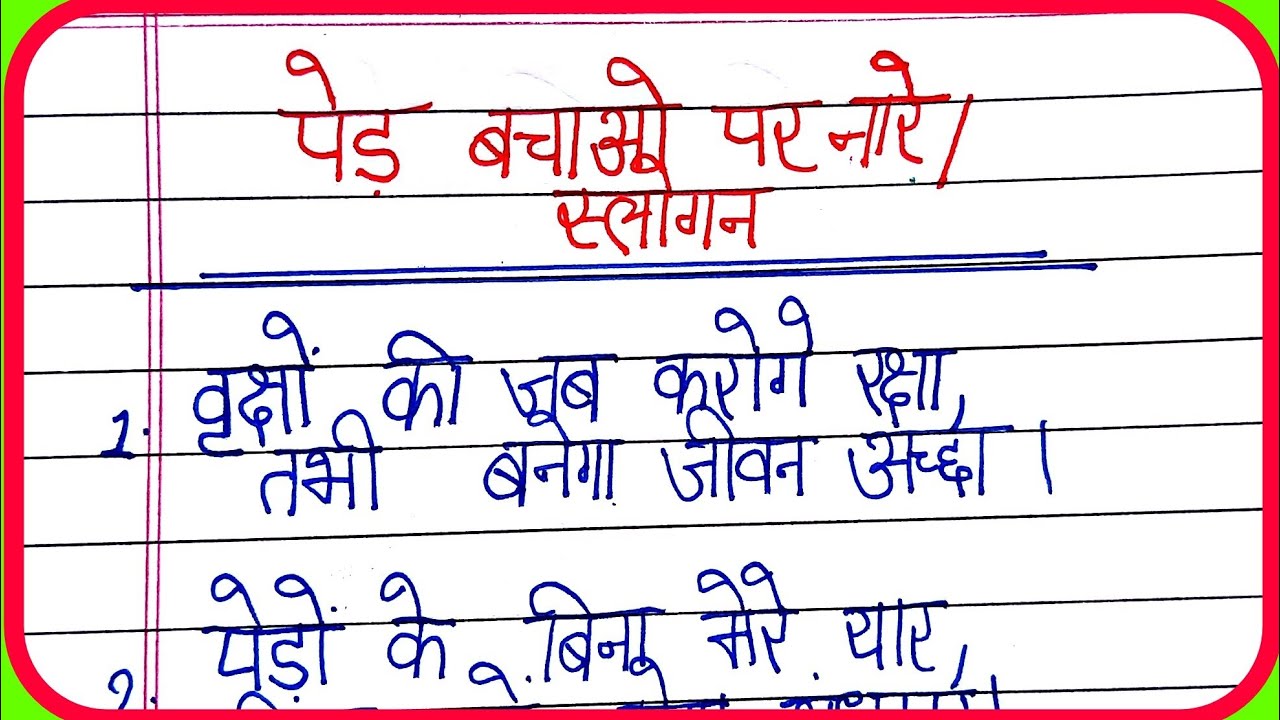 पेड़ बचाओ पर नारे।
स्लोगन
1. वृक्षों की जब करोगे रक्षा,
तभी बनेगा जीवन अच्छा।
2. पेड़ों के बिना मेरे यार,